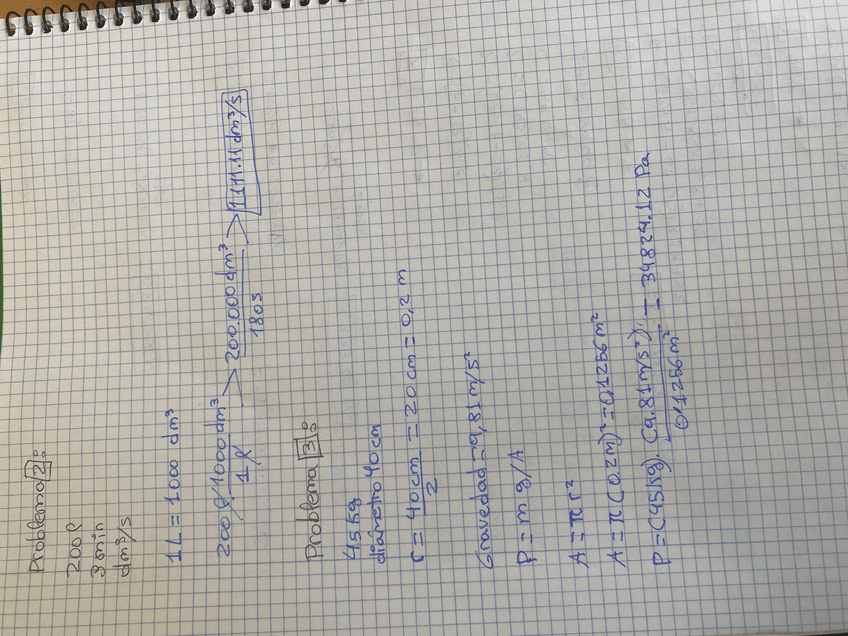 Problema 2:
200 l
3 min
dm³/s
1L = 1000 dm³
200 l 1000 dm³ / 1 l → 200.000 dm³ / 180s → 1111.11 dm³/s
Problema 3:
45kg
diámetro 40cm
r = 40cm / 2 = 20cm = 0,2 m
Gravedad = 9,81 m/s²
P = m g/A
A = π r²
A = π (0.2m)² = 0,1256 m²
P = (45kg). (9.81m/s²) / 0,1256 m² = 34824,12 Pa